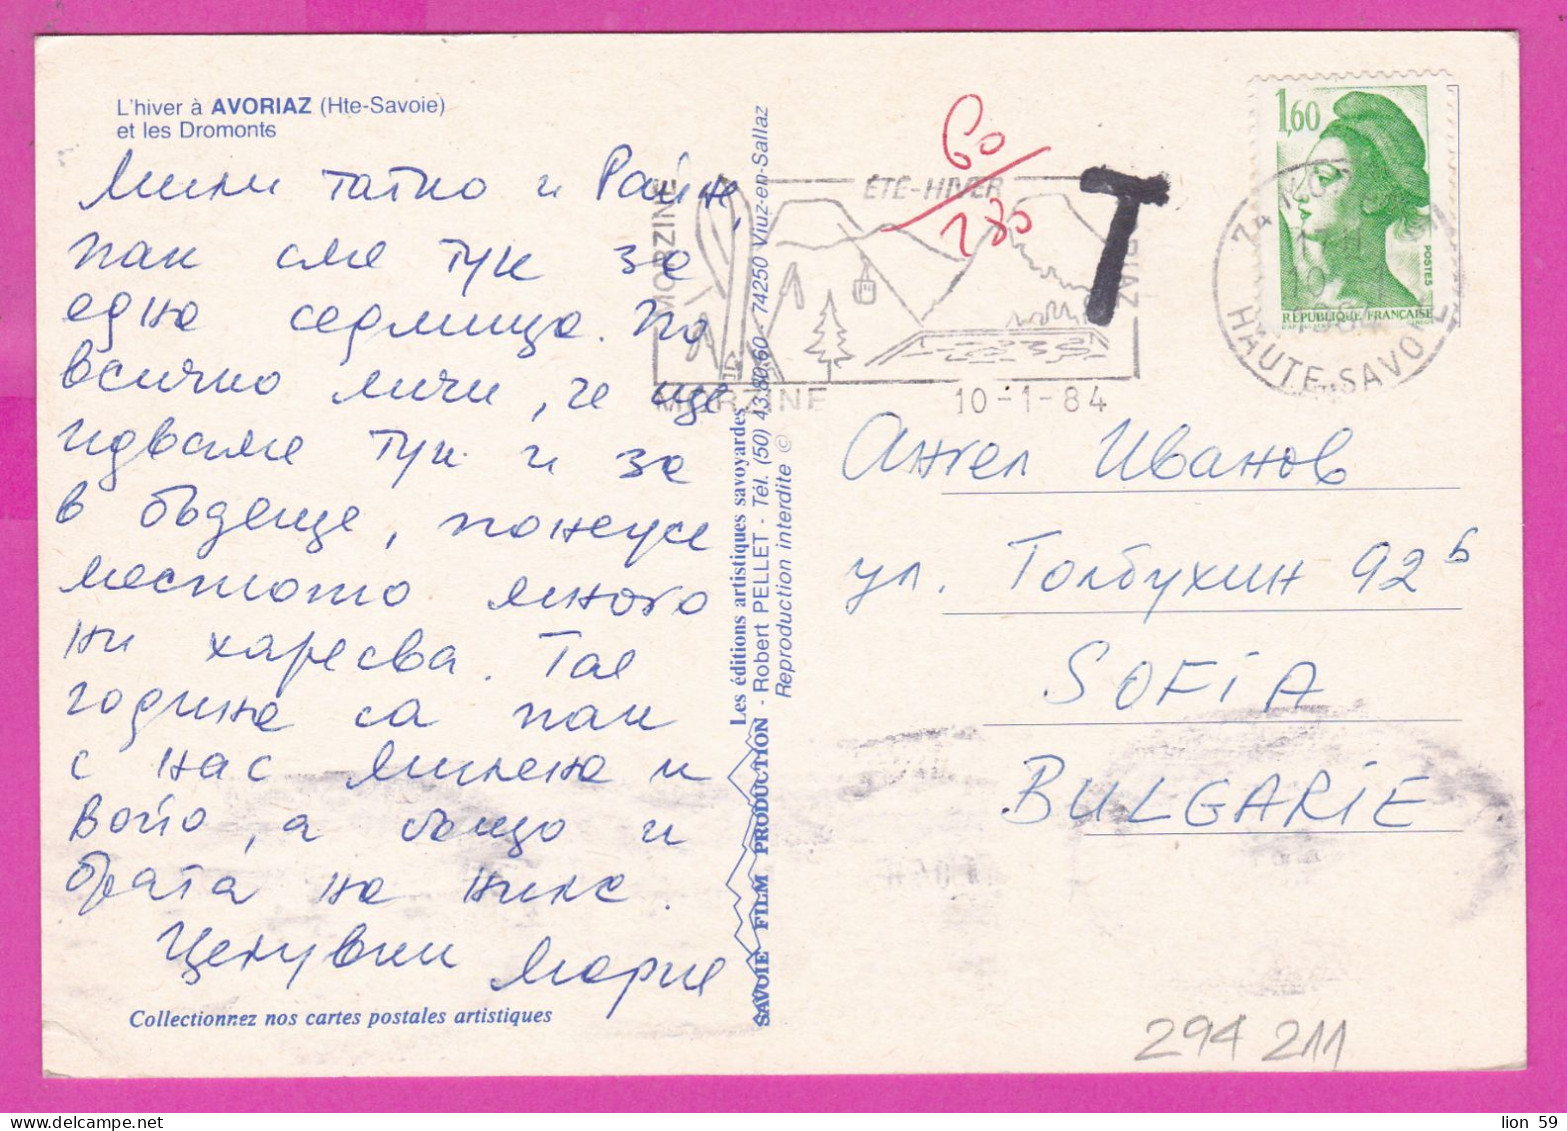 L'hiver à AVORIAZ (Hte-Savoie)
et les Dromonts
Мили татко и Райне,
пак сме тук за
една седмица. По
всичко личи, че ще
идваме тук и за
в бъдеще, понеже
мястото много
ни харесва. Тая
година са пак
с нас Милена и
Войо, а също и
брата на Ники.
Целувки Мария
Collectionnez nos cartes postales artistiques
Les éditions artistiques savoyardes
SAVOIE FILM PRODUCTION - Robert PELLET - Tél. (50) 43.80.60 - 74250 Viuz-en-Sallaz
Reproduction interdite ©
60
280
T
MORZINE
ÉTÉ-HIVER
MORZINE
10-1-84
1,60
POSTES
RÉPUBLIQUE FRANÇAISE
HAUTE-SAVOIE
Ангел Иванов
ул. Толбухин 92 б
SOFIA
BULGARIE
294 211
lion 59